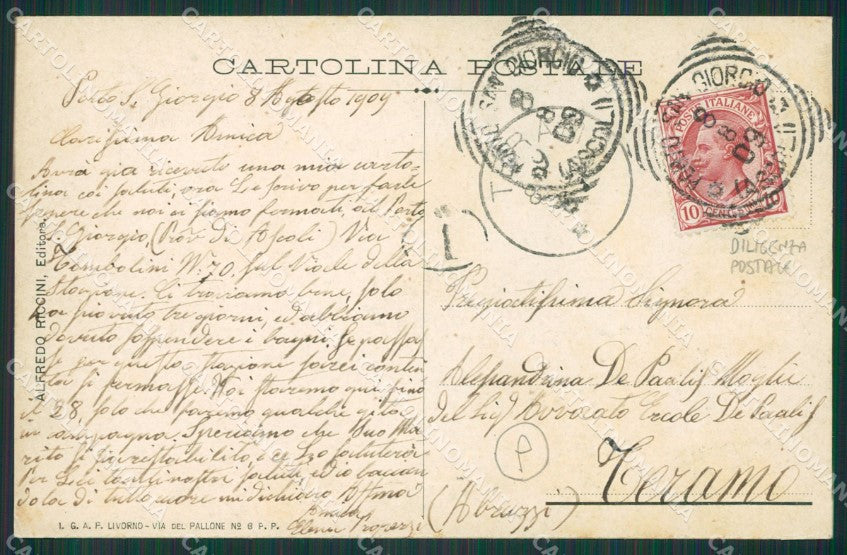 CARTOLINA POSTALE
Porto S. Giorgio 8 Agosto 1909
Carissima Amica
Avrà già ricevuto una mia carto-
lina coi saluti, ora Le scrivo per farle
sapere che noi ci siamo fermati al Porto
S. Giorgio (Prov. di Ascoli) Via
Tombolini N. 70 sul Viale della
Stazione. Ci troviamo bene, solo
ha piovuto tre giorni, ed abbiamo
dovuto sospendere i bagni. Se passa
si fermasse. Noi staremo qui fino
al 28, solo che faremo qualche gita
in campagna. Speriamo che suo Ma
rito si sia ristabilito, e ce lo saluterà
Per Lei tanti nostri saluti ed io bacian
dola di tutto cuore mi dichiaro Aff.ma
Amica
Elena Properzi
ALFREDO RICCINI, Editore
1. G. A. P. LIVORNO - VIA DEL PALLONE No 6 P. P.
PORTO SAN GIORGIO (ASCOLI)
8 8 09
T
PORTO SAN GIORGIO (ASCOLI)
8 8 09
POSTE ITALIANE
10 CENT.
DILIGENZA
POSTALE
Pregiatissima Signora
Alessandrina De Paulis Moglie
del Sig. Avvocato Ercole De Paulis
P
Teramo
(Abruzzi)
CARTOLINOMANIA